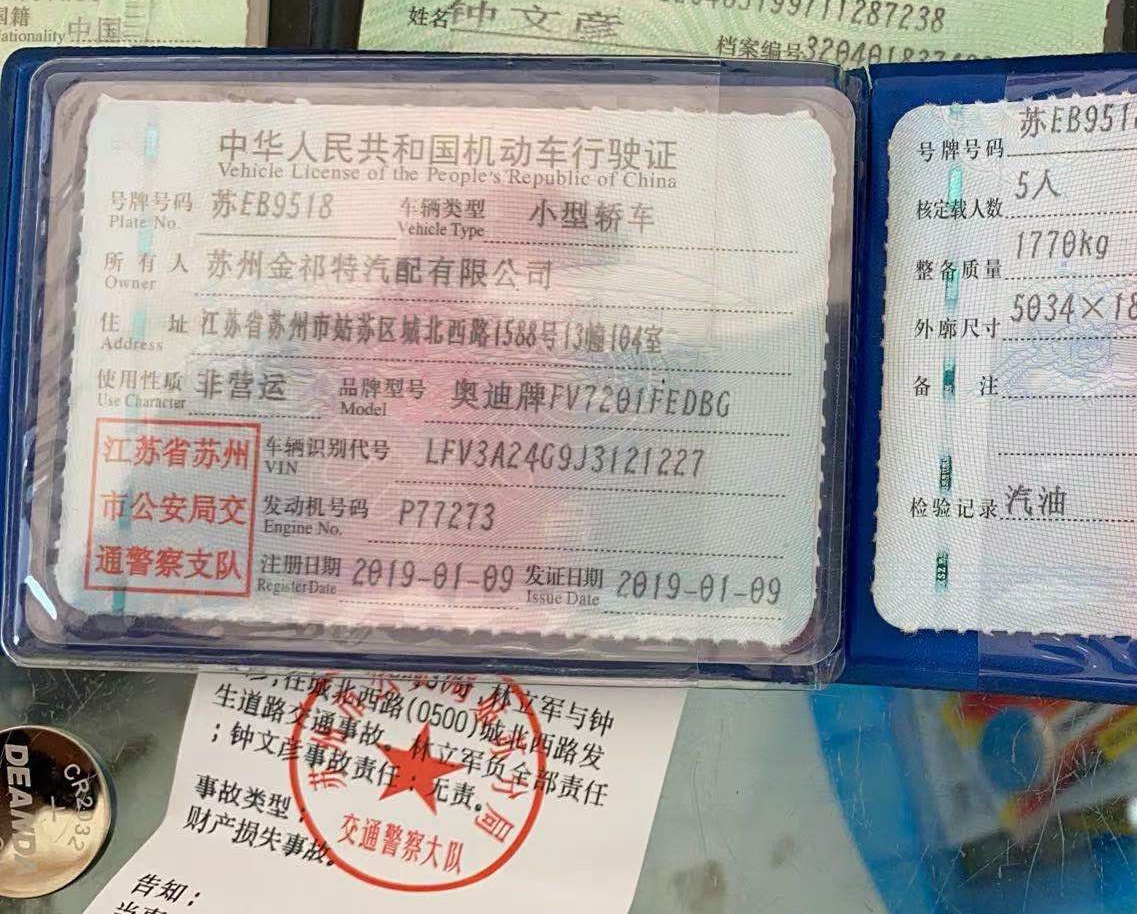 国籍
Nationality 中国
姓名 钟文彦
档案编号
中华人民共和国机动车行驶证
Vehicle License of the People's Republic of China
号牌号码 苏EB9518 车辆类型 小型轿车
Plate No. Vehicle Type
所有人 苏州金祁特汽配有限公司
Owner
住址 江苏省苏州市姑苏区城北西路1588号13幢104室
Address
使用性质 非营运 品牌型号 奥迪牌FV7201FEDBG
Use Character Model
江苏省苏州
市公安局交
通警察支队
车辆识别代号 LFV3A24G9J3121227
VIN
发动机号码 P77273
Engine No.
注册日期 2019-01-09 发证日期 2019-01-09
Register Date Issue Date
号牌号码 苏EB951
核定载人数 5人
整备质量 1770kg
外廓尺寸 5034×18
备注
检验记录 汽油
,在城北西路(0500)城北西路发
林立军与钟
生道路交通事故。林立军负全部责任
;钟文彦事故责任:无责。
事故类型:
财产损失事故。
告知:
交通警察大队
CR2032
+